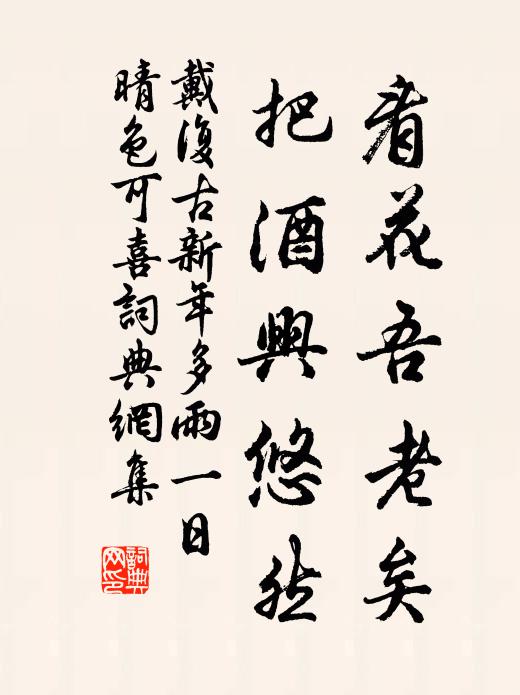 看花吾老矣
把酒興悠然
戴復古新年多雨一日
晴色可喜詞典網集
詞典
网印